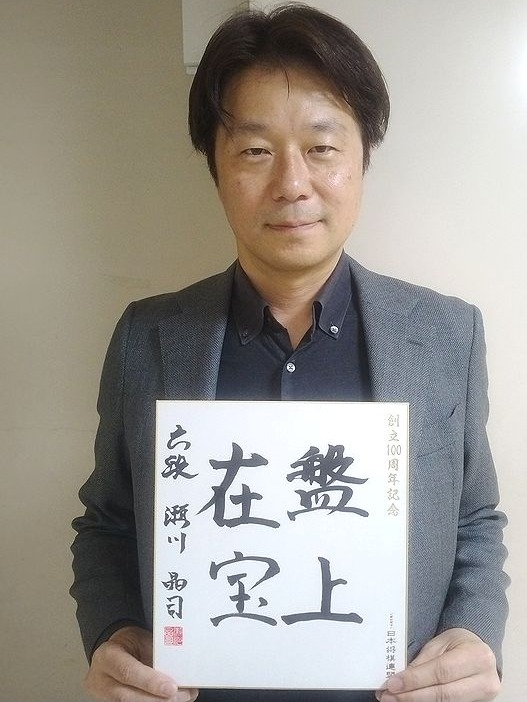 創立100周年記念
盤上
在宝
六段 瀬川 晶司
日本将棋連盟